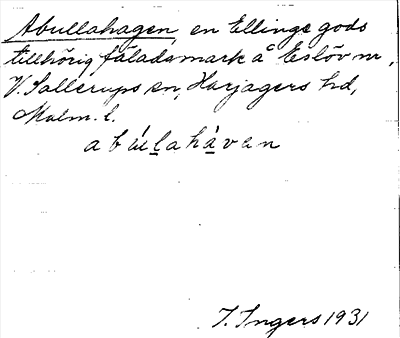 Abullahagen, en Ellinge gods
tillhörig fäladsmark å Eslöv nr,
V. Sallerups sn, Harjagers hd,
Malm. l.
abúlahàvan
I. Ingers 1931